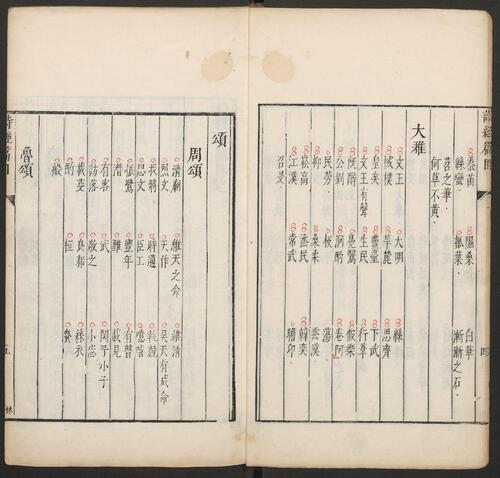 黍苗 隰桑 白華
緜蠻 瓠葉 漸漸之石
苕之華
何草不黃
大雅
文王 大明 緜
棫樸 旱麓 思齊
皇矣 靈臺 下武
文王有聲 生民 行葦
既醉 鳧鷖 假樂
公劉 泂酌 卷阿
民勞 板 蕩
抑 桑柔 雲漢
崧高 烝民 韓奕
江漢 常武 瞻卬
召旻
頌
周頌
清廟 維天之命 維清
烈文 天作 昊天有成命
我將 時邁 執競
思文 臣工 噫嘻
振鷺 豐年 有瞽
潛 雝 載見
有客 武 閔予小子
訪落 敬之 小毖
載芟 良耜 絲衣
酌 桓 賚
般
魯頌
五
林